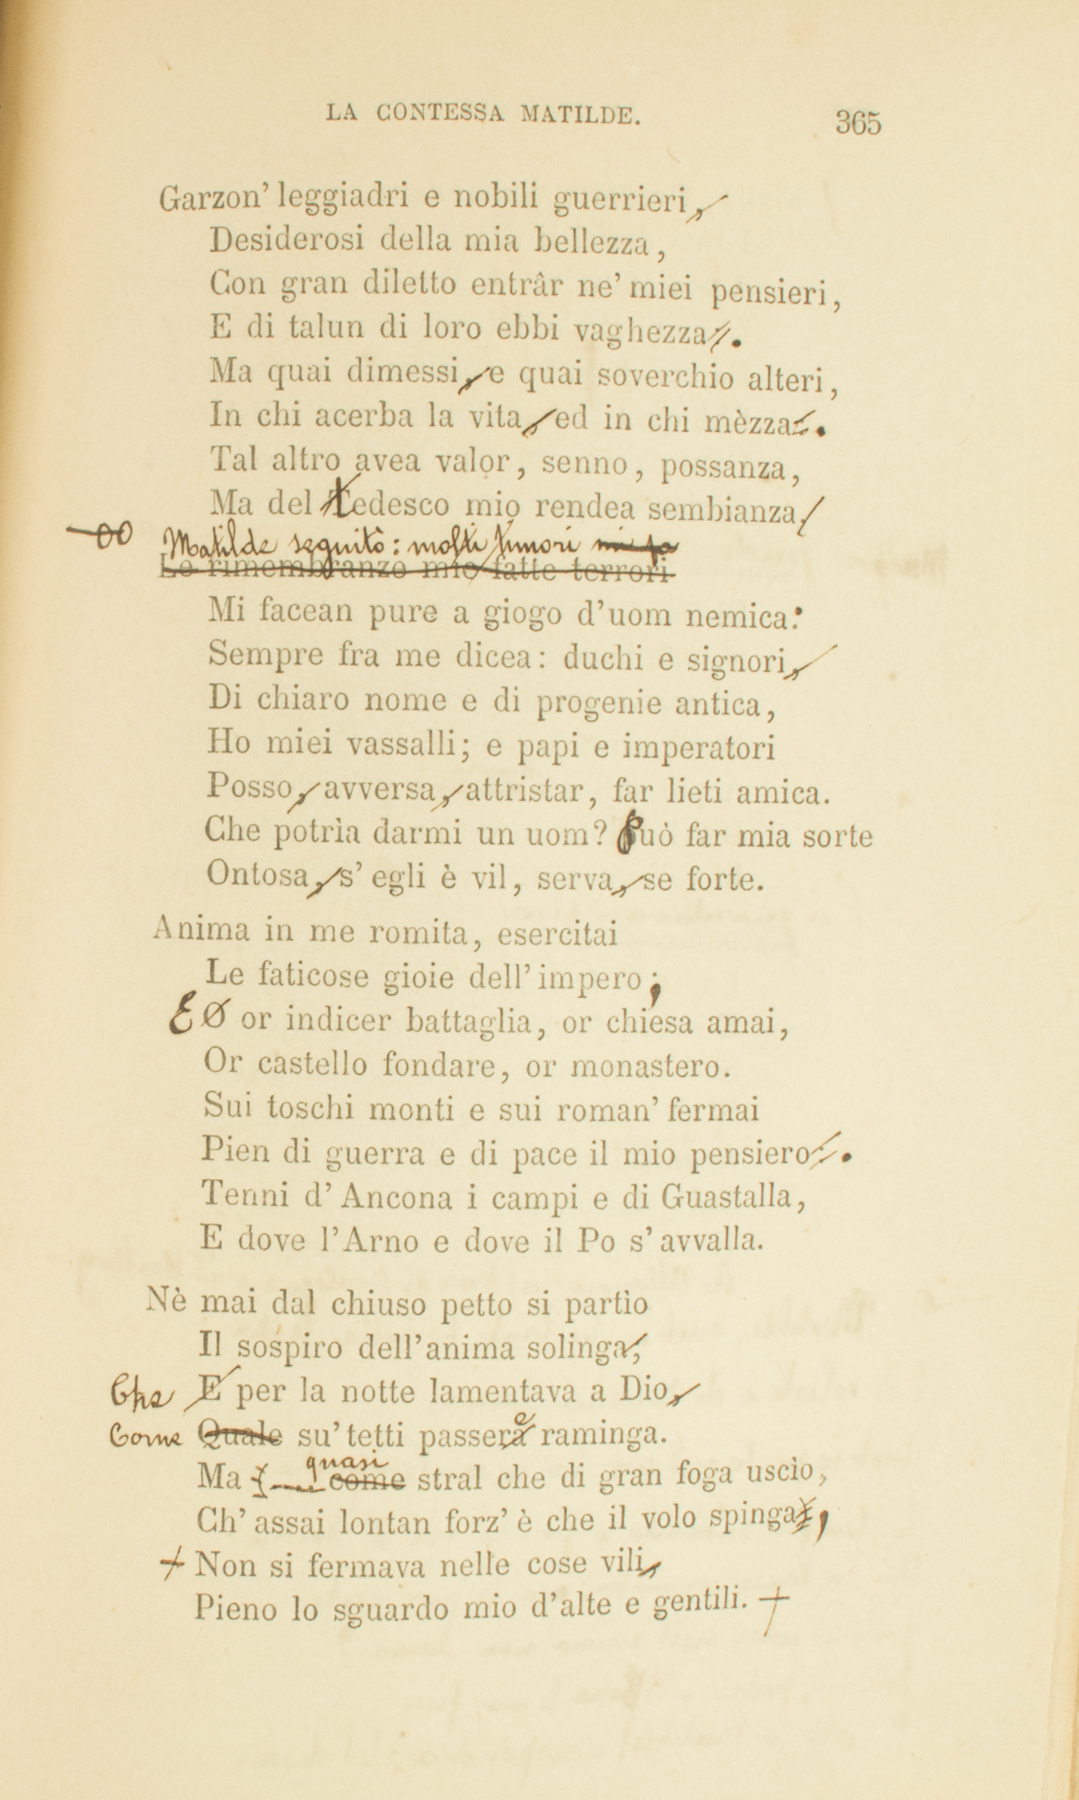 LA CONTESSA MATILDE. 365
Garzon' leggiadri e nobili guerrieri,
Desiderosi della mia bellezza,
Con gran diletto entrâr ne' miei pensieri,
E di talun di loro ebbi vaghezza.
Ma quai dimessi, e quai soverchio alteri,
In chi acerba la vita, ed in chi mèzza.
Tal altro avea valor, senno, possanza,
Ma del tedesco mio rendea sembianza
Matilde seguitò: molti timori mi fa
Le rimembranze mie fatte terrori
Mi facean pure a giogo d'uom nemica:
Sempre fra me dicea: duchi e signori,
Di chiaro nome e di progenie antica,
Ho miei vassalli; e papi e imperatori
Posso, avversa, attristar, far lieti amica.
Che potrìa darmi un uom? può far mia sorte
Ontosa, s' egli è vil, serva, se forte.
Anima in me romita, esercitai
Le faticose gioie dell' impero;
E O or indicer battaglia, or chiesa amai,
Or castello fondare, or monastero.
Sui toschi monti e sui roman' fermai
Pien di guerra e di pace il mio pensiero.
Tenni d' Ancona i campi e di Guastalla,
E dove l'Arno e dove il Po s' avvalla.
Nè mai dal chiuso petto si partìo
Il sospiro dell'anima solinga,
Che E per la notte lamentava a Dio,
Come Quale su' tetti passera e raminga.
quasi
Ma come stral che di gran foga uscìo,
Ch' assai lontan forz' è che il volo spinga,
Non si fermava nelle cose vili,
Pieno lo sguardo mio d'alte e gentili.